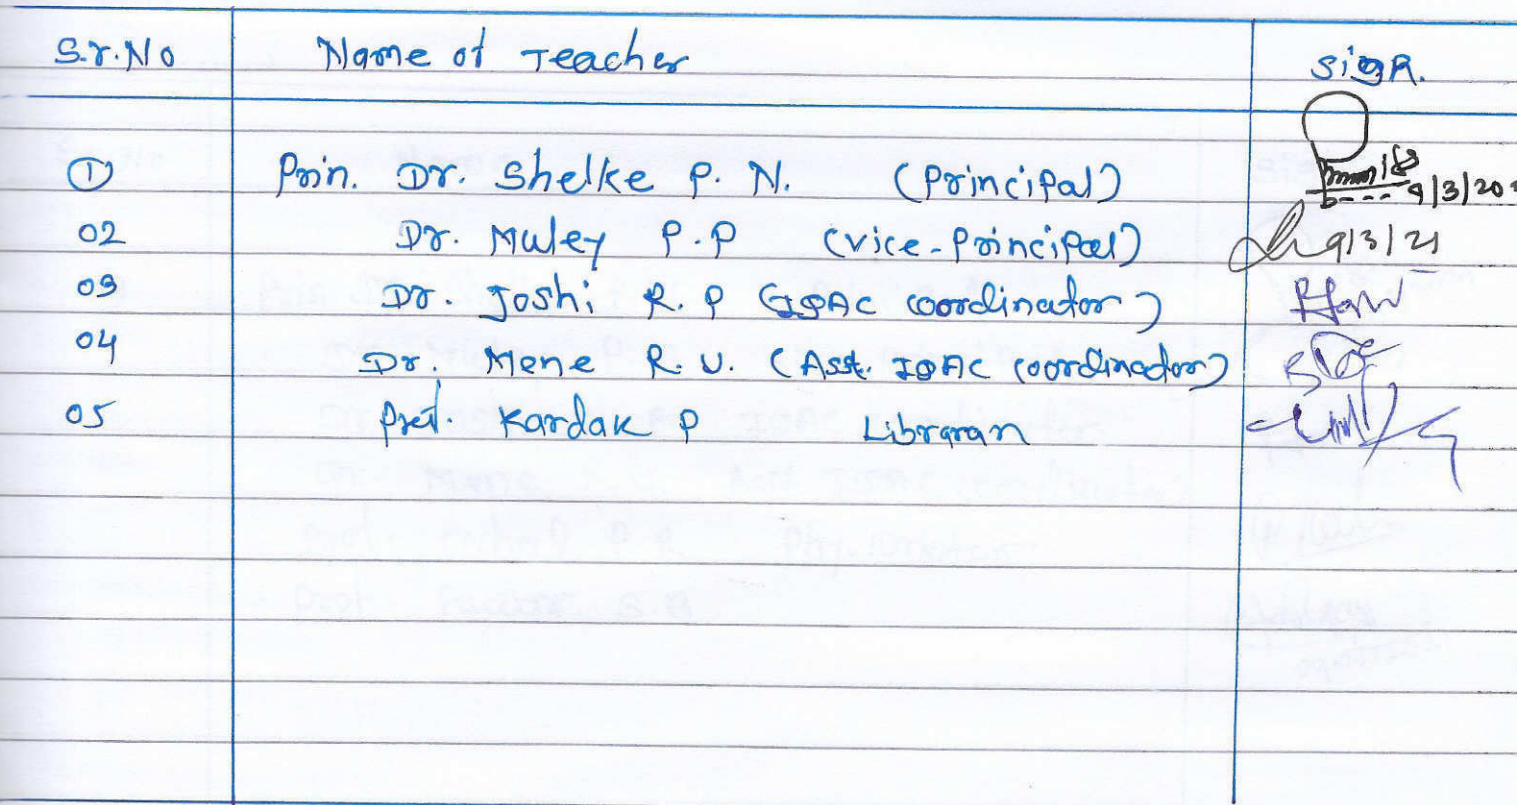 S.r.No Name of Teacher Sign.
① Prin. Dr. Shelke P. N. (Principal) 9/3/202
02 Dr. Muley P.P (Vice-Principal) 9/3/21
03 Dr. Joshi R.P (IQAC Coordinator)
04 Dr. Mene R.U. (Asst. IQAC Coordinator)
05 Prof. Kardak P Libraran